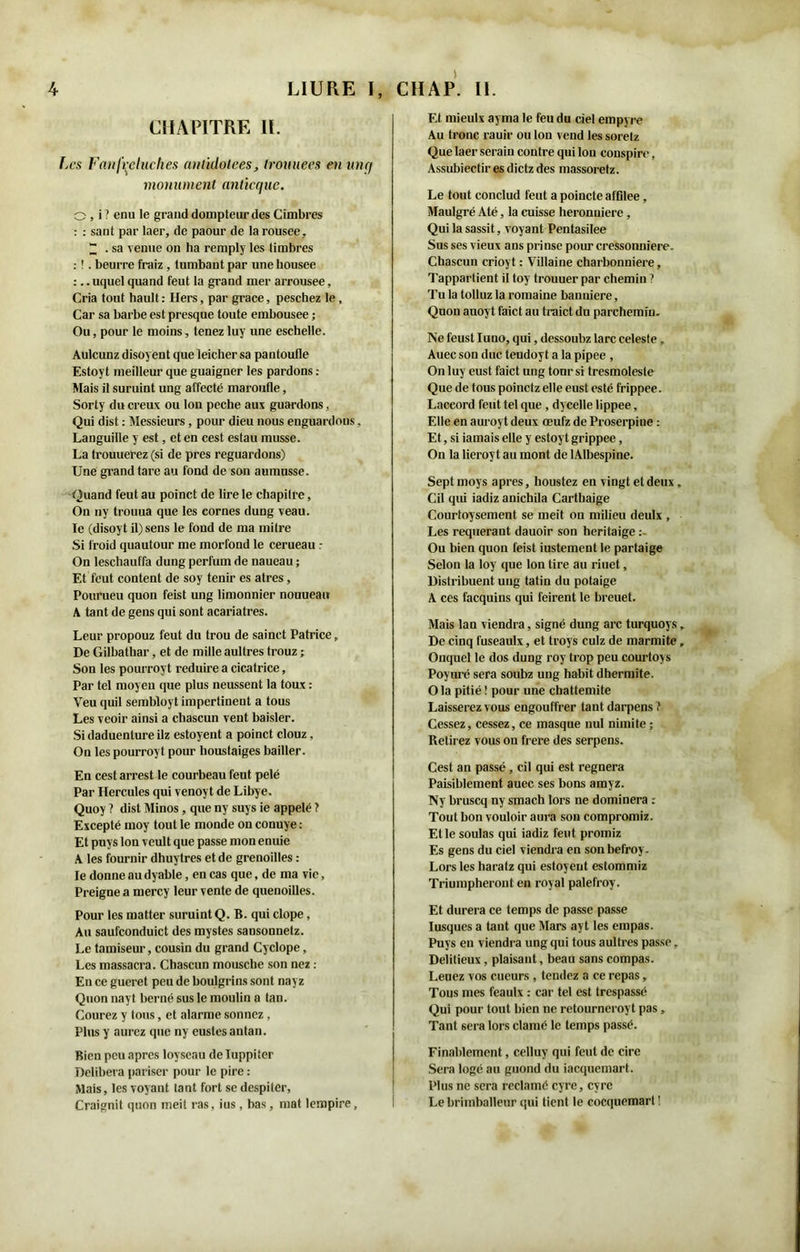 4 LIURE I, CHAP. II.
CHAPITRE II.
Les Fanfreluches antidotees, trouuees en ung
monument anticque.
O , i ? enu le grand dompteur des Cimbres
: : sant par laer, de paour de la rousee,
. sa venue on ha remply les timbres
: ! . beurre fraiz , tumbant par une housee
: .. uquel quand feut la grand mer arrousee,
Cria tout hault : Hers, par grace, peschez le ,
Car sa barbe est presque toute embousee ;
Ou, pour le moins, tenez luy une eschelle.
Aulcunz disoyent que leicher sa pantoufle
Estoyt meilleur que guaigner les pardons :
Mais il suruint ung affecté maroufle,
Sorty du creux ou lon peche aux guardons,
Qui dist : Messieurs , pour dieu nous enguardons,
Languille y est , et en cest estau musse.
La trouuerez (si de pres reguardons)
Une grand tare au fond de son aumusse.
Quand feut au poinct de lire le chapitre,
On ny trouua que les cornes dung veau.
Ie (disoyt il) sens le fond de ma mitre
Si froid quautour me morfond le cerueau :
On leschauffa dung perfum de naueau ;
Et feut content de soy tenir es atres ,
Pourueu quon feist ung limonnier nouueau
A tant de gens qui sont acariatres.
Leur propouz feut du trou de sainct Patrice,
De Gilbathar , et de mille aultres trouz ;
Son les pourroyt reduire a cicatrice,
Par tel moyen que plus neussent la toux :
Veu quil sembloyt impertinent a tous
Les veoir ainsi a chascun vent baisler.
Si daduenture ilz estoyent a poinct clouz,
On les pourroyt pour houstaiges bailler.
En cest arrest le courbeau feut pelé
Par Hercules qui venoyt de Libye.
Quoy ? dist Minos , que ny suys ie appelé ?
Excepté moy tout le monde on conuye :
Et puys lon veult que passe mon enuie
A les fournir dhuytres et de grenoilles :
Ie donne au dyable , en cas que, de ma vie,
Preigne a mercy leur vente de quenoilles.
Pour les matter suruint Q. B. qui clope,
Au saufconduict des mystes sansonnetz.
Le tamiseur, cousin du grand Cyclope,
Les massacra. Chascun mousche son nez :
En ce gueret peu de boulgrins sont nayz
Quon nayt berné sus le moulin a tan.
Courez y tous, et alarme sonnez ,
Plus y aurez que ny eustes antan.
Bien peu apres loyseau de Iuppiter
Delibera pariser pour le pire :
Mais, les voyant tant fort se despiter,
Craignit quon meit ras, ius , bas, mat lempire,
Et mieulx ayma le feu du ciel empyre
Au tronc rauir ou lon vend les soretz
Que laer serain contre qui lon conspire,
Assubiectir es dictz des massoretz.
Le tout conclud feut a poincte affilee,
Maulgré Até, la cuisse heronniere ,
Qui la sassit, voyant Pentasilee
Sus ses vieux ans prinse pour cressonniere.
Chascun crioyt : Villaine charbonniere,
Tappartient il toy trouuer par chemin ?
Tu la tolluz la romaine banniere,
Quon auoyt faict au traict du parchemin.
Ne feust Iuno, qui, dessoubz larc celeste,
Auec son duc tendoyt a la pipee ,
On luy eust faict ung tour si tresmoleste
Que de tous poinctz elle eust esté frippee.
Laccord feut tel que , dycelle lippee,
Elle en auroyt deux œufz de Proserpine :
Et, si iamais elle y estoyt grippee,
On la lieroyt au mont de lAlbespine.
Sept moys apres, houstez en vingt et deux,
Cil qui iadiz anichila Carthaige
Courtoysement se meit on milieu deulx ,
Les requerant dauoir son heritaige :
Ou bien quon feist iustement le partaige
Selon la loy que lon tire au riuet,
Distribuent ung tatin du potaige
A ces facquins qui feirent le breuet.
Mais lan viendra, signé dung arc turquoys,
De cinq fuseaulx, et troys culz de marmite,
Onquel le dos dung roy trop peu courtoys
Poyuré sera soubz ung habit dhermite.
O la pitié ! pour une chattemite
Laisserez vous engouffrer tant darpens ?
Cessez, cessez, ce masque nul nimite ;
Retirez vous on frere des serpens.
Cest an passé , cil qui est regnera
Paisiblement auec ses bons amyz.
Ny bruscq ny smach lors ne dominera :
Tout bon vouloir aura son compromiz.
Et le soulas qui iadiz feut promiz
Es gens du ciel viendra en son befroy.
Lors les haratz qui estoyent estommiz
Triumpheront en royal palefroy.
Et durera ce temps de passe passe
Iusques a tant que Mars ayt les empas.
Puys en viendra ung qui tous aultres passe,
Delitieux , plaisant, beau sans compas.
Leuez vos cueurs , tendez a ce repas,
Tous mes feaulx : car tel est trespassé
Qui pour tout bien ne retourneroyt pas,
Tant sera lors clamé le temps passé.
Finablement , celluy qui feut de cire
Sera logé au guond du iacquemart.
Plus ne sera reclamé cyre, cyre
Le brimballeur qui tient le cocquemart !